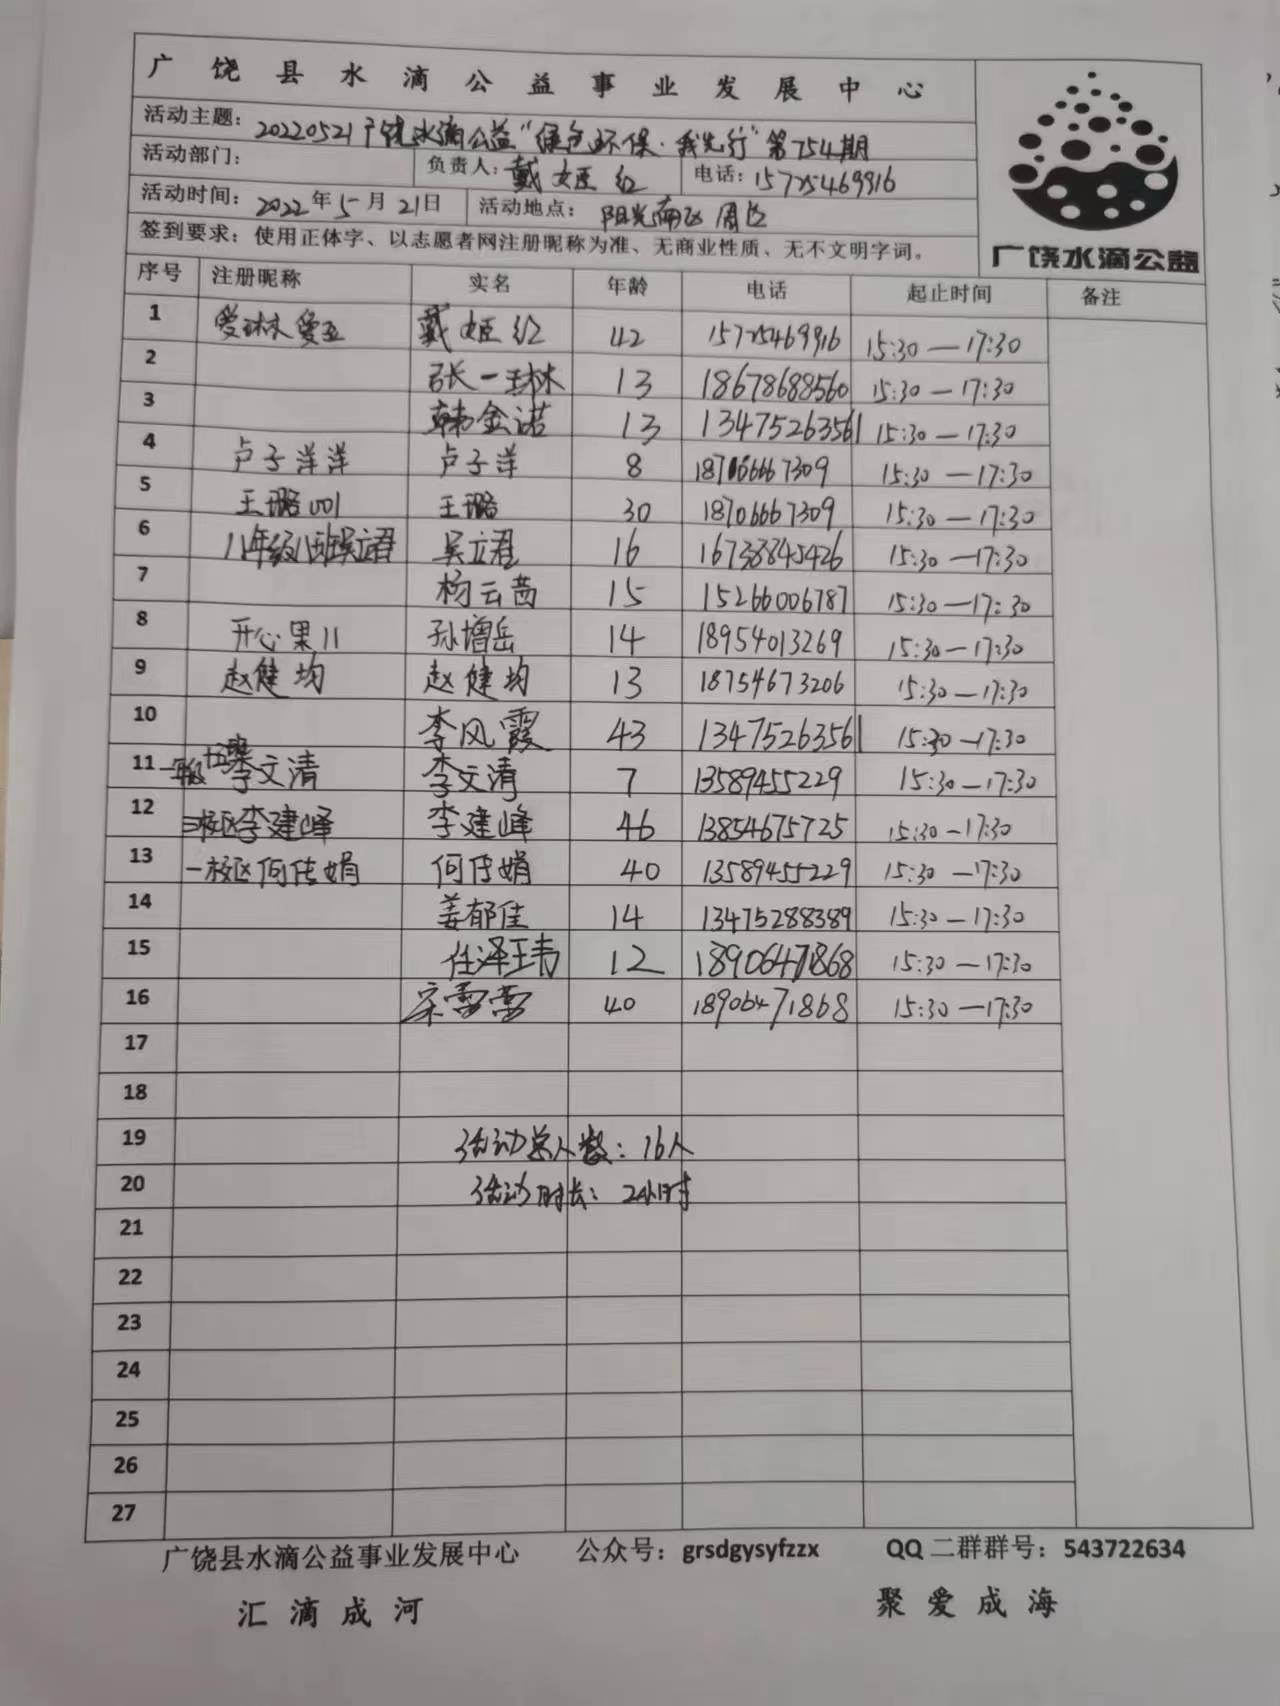 广饶县水滴公益事业发展中心
活动主题：20220521广饶水滴公益“绿色环保·我先行”第754期
活动部门： 负责人：戴姬红 电话：15725469916
活动时间：2022年5月21日 活动地点：阳光南区周边
签到要求：使用正体字、以志愿者网注册昵称为准、无商业性质、无不文明字词。
广饶水滴公益
序号 注册昵称 实名 年龄 电话 起止时间 备注
1 戴姬红 42 15725469916 15:30—17:30
2 张一琳 13 18678688560 15:30—17:30
3 韩金诺 13 13475263561 15:30—17:30
4 卢子洋洋 卢子洋 8 18706667309 15:30—17:30
5 王璐001 王璐 30 18706667309 15:30—17:30
6 八年级八班吴立君 吴立君 16 16738845426 15:30—17:30
7 杨云茜 15 15266006787 15:30—17:30
8 开心果11 孙增岳 14 18954013269 15:30—17:30
9 赵健均 赵健均 13 18754673206 15:30—17:30
10 李风霞 43 13475263561 15:30—17:30
11 李文清 李文清 7 13589455229 15:30—17:30
12 李建峰 李建峰 46 13854675725 15:30—17:30
13 一校区何传娟 何传娟 40 13589455229 15:30—17:30
14 姜郁佳 14 13475288389 15:30—17:30
15 任泽玮 12 18906471868 15:30—17:30
16 宋雷雷 40 18906471868 15:30—17:30
17
18
19 活动总人数：16人
20 活动时长：2小时
21
22
23
24
25
26
27
广饶县水滴公益事业发展中心 公众号：grsdgysyfzzx QQ二群群号：543722634
汇滴成河 聚爱成海